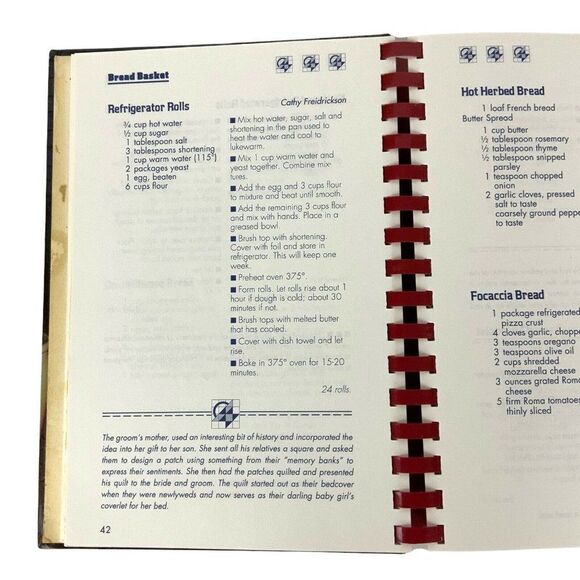 Bread Basket
Refrigerator Rolls
Cathy Freidrickson
¾ cup hot water
½ cup sugar
1 tablespoon salt
3 tablespoons shortening
1 cup warm water (115°)
2 packages yeast
1 egg, beaten
6 cups flour
■ Mix hot water, sugar, salt and
shortening in the pan used to
heat the water and cool to
lukewarm.
■ Mix 1 cup warm water and
yeast together. Combine mix-
tures.
■ Add the egg and 3 cups flour
to mixture and beat until smooth.
■ Add the remaining 3 cups flour
and mix with hands. Place in a
greased bowl.
■ Brush top with shortening.
Cover with foil and store in
refrigerator. This will keep one
week.
■ Preheat oven 375°.
■ Form rolls. Let rolls rise about 1
hour if dough is cold; about 30
minutes if not.
■ Brush tops with melted butter
that has cooled.
■ Cover with dish towel and let
rise.
■ Bake in 375° oven for 15-20
minutes.
24 rolls.
The groom's mother, used an interesting bit of history and incorporated the
idea into her gift to her son. She sent all his relatives a square and asked
them to design a patch using something from their "memory banks" to
express their sentiments. She then had the patches quilted and presented
his quilt to the bride and groom. The quilt started out as their bedcover
when they were newlyweds and now serves as their darling baby girl's
coverlet for her bed.
42
Hot Herbed Bread
1 loaf French bread
Butter Spread
1 cup butter
½ tablespoon rosemary
½ tablespoon thyme
½ tablespoon snipped
parsley
1 teaspoon chopped
onion
2 garlic cloves, pressed
salt to taste
coarsely ground peppe
to taste
Focaccia Bread
1 package refrigerated
pizza crust
4 cloves garlic, chopped
3 teaspoons oregano
3 teaspoons olive oil
2 cups shredded
mozzarella cheese
3 ounces grated Roma
cheese
5 firm Roma tomatoes
thinly sliced